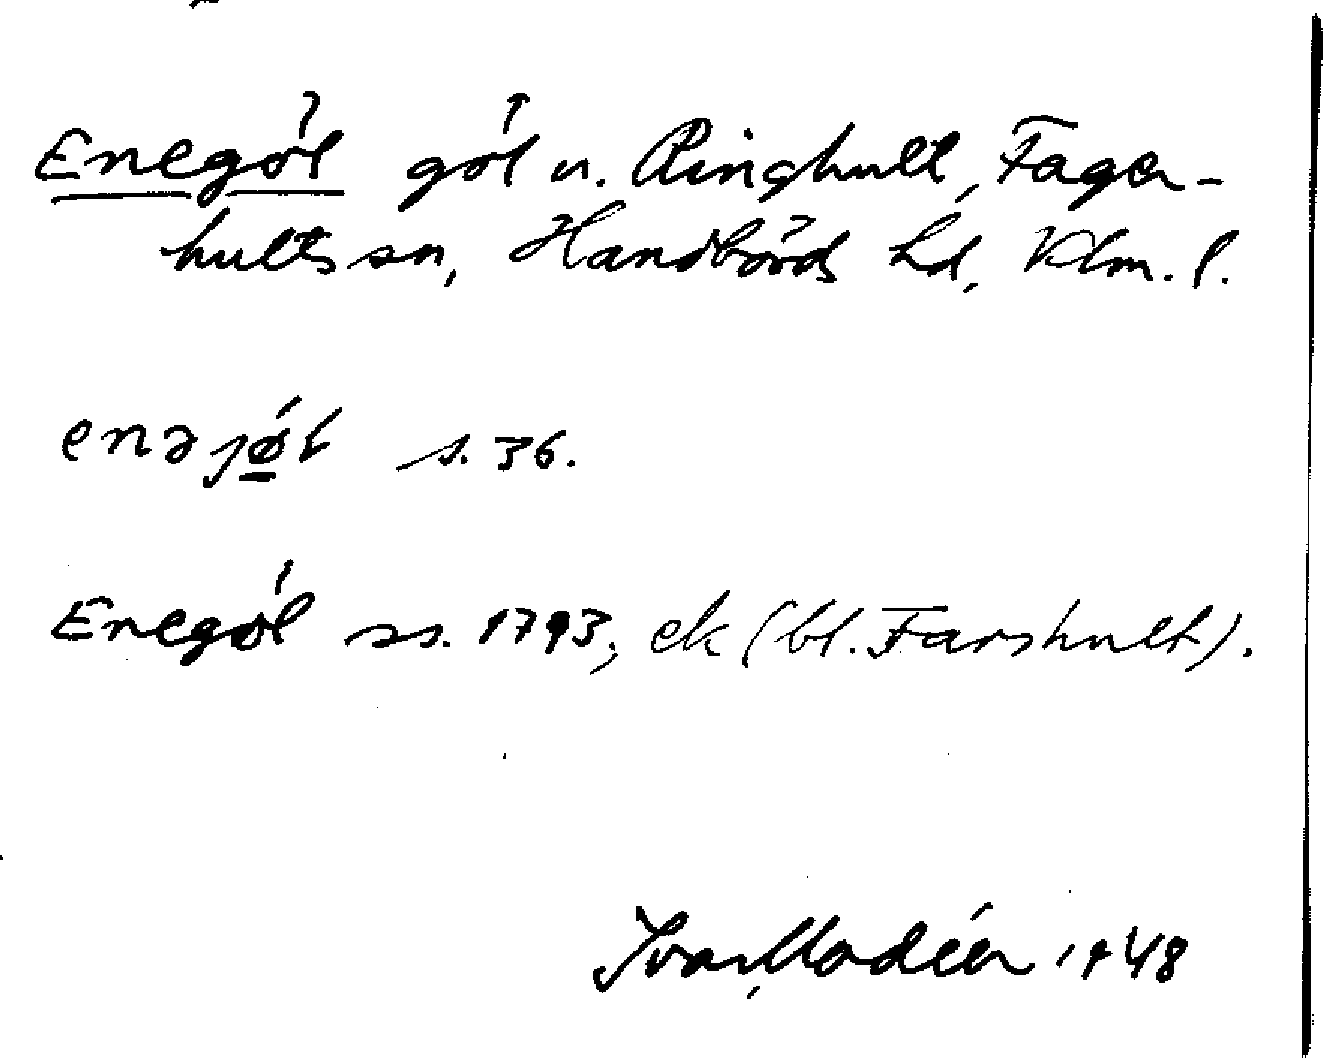 Enegöl göl u. Ringhult, Fager-
hults sn, Handbörds hd, Klm. l.
enəjǿ̱l s. 36.
Enegöl ss. 1793, ek (bl. Farshult).
Ivar Modéer 1948